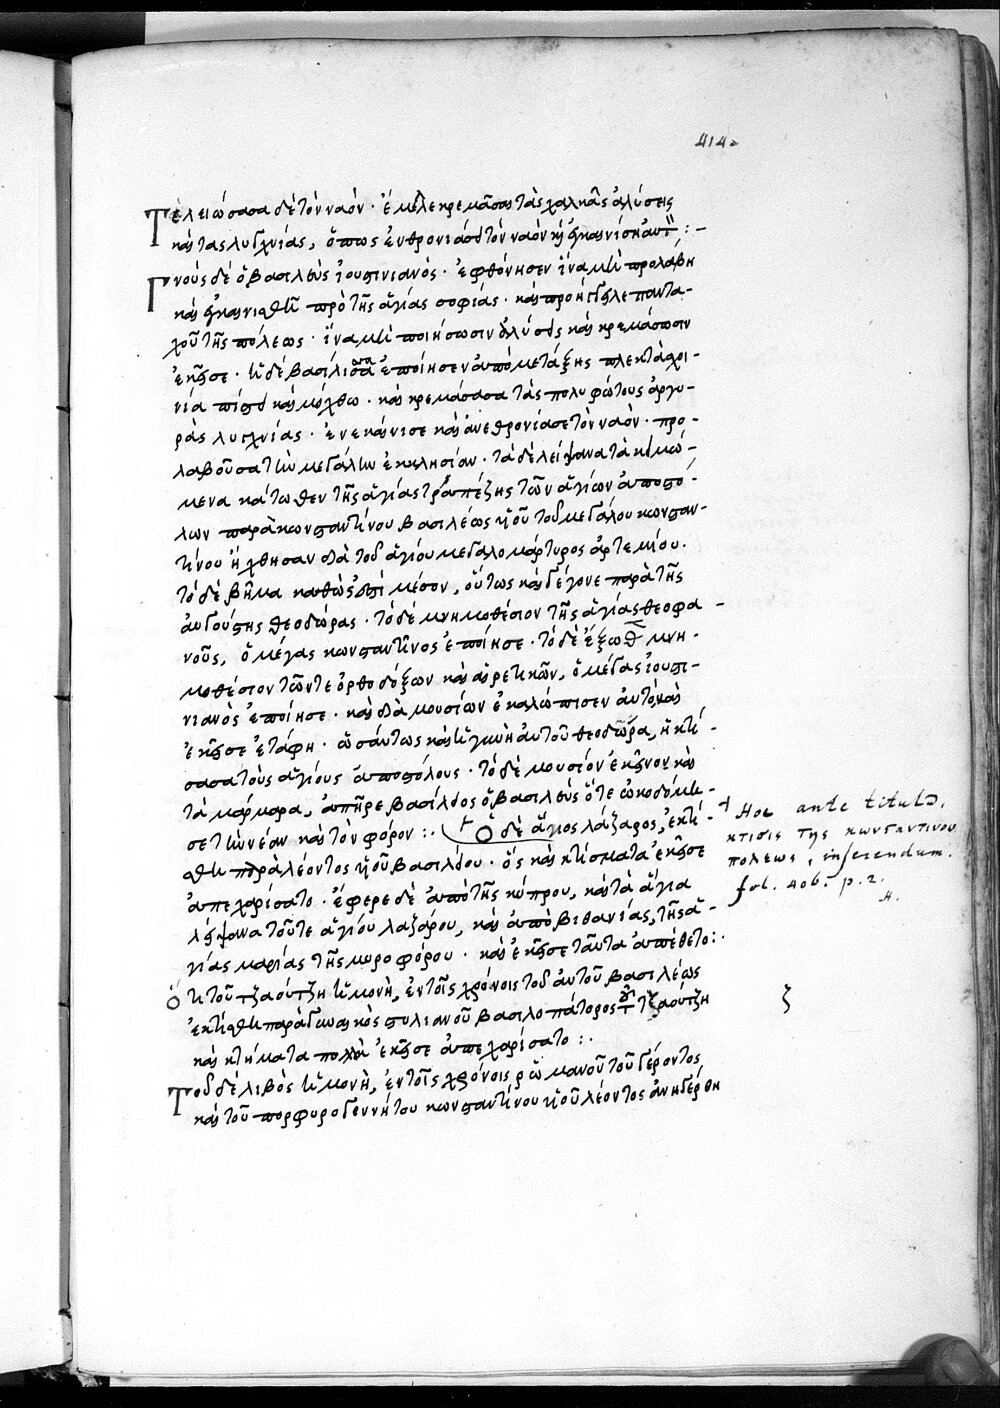 414.
Τελειώσασα δὲ τὸν ναὸν · ἔμελε κρεμᾶσαι τὰς χαλκᾶς ἁλύσεις
καὶ τὰς λυχνίας, ὅπως ἐνθρονιάσει τὸν ναὸν καὶ ἐγκαινίσῃ αὐτὸν :-
Γνοὺς δὲ ὁ βασιλεὺς ἰουστινιανὸς · ἐφθόνησεν ἵνα μὴ προλάβῃ
καὶ ἐγκαινισθῇ πρὸ τῆς ἁγίας σοφίας · καὶ προήγγειλε παντα-
χοῦ τῆς πόλεως · ἵνα μὴ ποιήσωσιν ἁλύσεις καὶ κρεμάσωσιν
ἐκεῖσε · ἡ δὲ βασίλισσα ἐποίησεν ἀπὸ μετάξης πλεκτὰ χοι-
νία πίσσῃ καὶ μόχθω · καὶ κρεμάσασα τὰς πολυφώτους ἀργυ-
ρὰς λυχνίας · ἐνεκαίνισε καὶ ἀνεθρονίασε τὸν ναὸν · προ-
λαβοῦσα τὴν μεγάλην ἐκκλησίαν · τὰ δὲ λείψανα τὰ κείμώ-
μενα κάτωθεν τῆς ἁγίας τραπέζης τῶν ἁγίων ἀποστό-
λων παρὰ κωνσταντίνου βασιλέως υἱοῦ τοῦ μεγάλου κωνσταν-
τίνου ἤχθησαν διὰ τοῦ ἁγίου μεγαλομάρτυρος ἀρτεμίου.
τὸ δὲ βῆμα καθὼς ἐστὶ μέσον, οὕτως καὶ γέγονε παρὰ τῆς
αὐγούστης θεοδώρας · τὸ δὲ μνημοθέσιον τῆς ἁγίας θεοφα-
νοῦς, ὁ μέγας κωνσταντῖνος ἐποίησε · τὸ δὲ ἔξωθεν μνη-
μοθέσιον τῶν τε ὀρθοδόξων καὶ αἱρετικῶν, ὁ μέγας ἰουστι-
νιανὸς ἐποίησε · καὶ διὰ μουσίων ἐκαλώπισεν αὐτὸ καὶ
ἐκεῖσε ἐτάφη · ὡσαύτως καὶ ἡ γυνὴ αὐτοῦ θεοδώρα, ἡ κτί-
σασα τοὺς ἁγίους ἀποστόλους · τὸ δὲ μουσίον ἐκεῖνον καὶ
τὰ μάρμαρα, ἀπῆρε βασίλειος ὁ βασιλεὺς ὅτε ὠκοδόμη-
σε τὴν νέαν καὶ τὸν φόρον :. + Ὁ δὲ ἅγιος λάζαρος, ἐκτί-
σθη παρὰ λέοντος υἱοῦ βασιλείου · ὃς καὶ κτίσματα ἐκεῖσε
ἀπεχαρίσατο · ἔφερε δὲ ἀπὸ τῆς κύπρου, καὶ τὰ ἅγια
λείψανα τοῦ τε ἁγίου λαζάρου, καὶ ἀπὸ βιθανίας, τῆς ἁ-
γίας μαρίας τῆς μυροφόρου · καὶ ἐκεῖσε ταῦτα ἀπέθετο :.
Ὁ
ἡ τοῦ τζαούτζη ἡ μονὴ, ἐν τοῖς χρόνοις τοῦ αὐτοῦ βασιλέως
ἐκτίσθη παρὰ στυλιανοῦ βασιλοπάτορος τοῦ τζαούτζη
καὶ κτήματα πολλὰ ἐκεῖσε ἀπεχαρίσατο :.
Τοῦ δὲ λιβὸς ἡ μονὴ, ἐν τοῖς χρόνοις ῥωμανοῦ τοῦ γέροντος
καὶ τοῦ πορφυρογεννήτου κωνσταντίνου υἱοῦ λέοντος ἀνηγέρθη
+ Hoc ante titulū.
κτισις της κωνσταντινου
πολεως, inserendum.
fol. 406. p. 2.